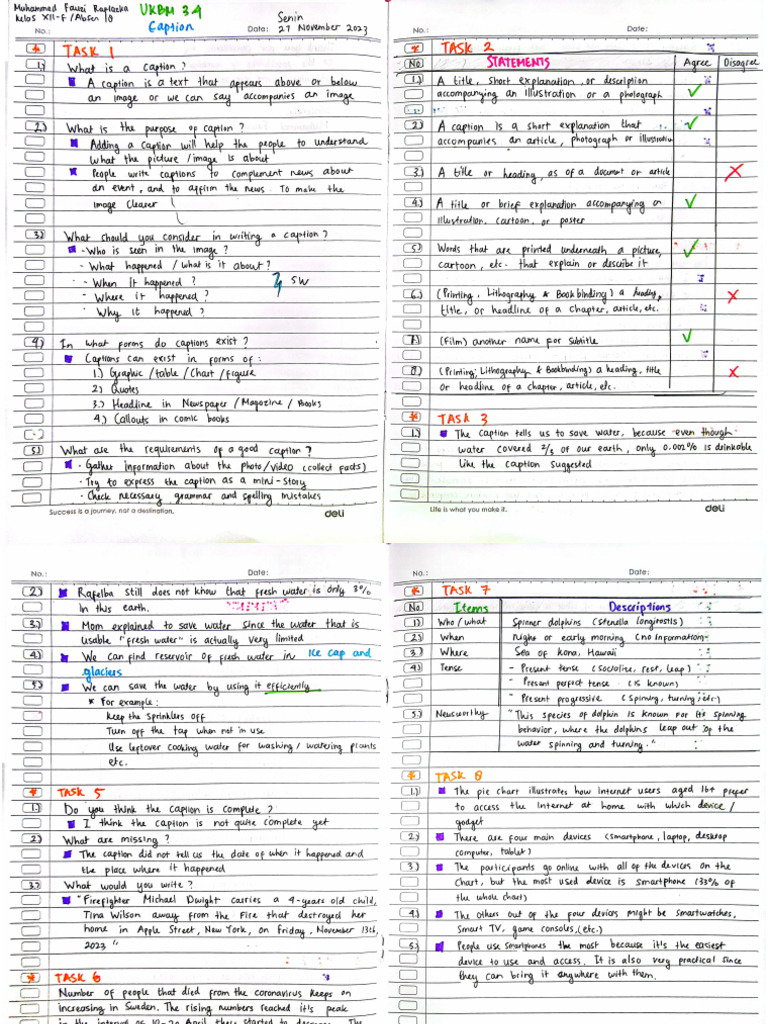 Muhammad Fauzi Raplazka
Kelas XII-F / Absen 18
UKBM 3.4
Caption
Senin
No.:
Date: 27 November 2023
TASK 1
1.) What is a caption?
A caption is a text that appears above or below
an image or we can say accompanies an image
2.) What is the purpose of caption?
Adding a caption will help the people to understand
what the picture / image is about
People write captions to complement news about
an event, and to affirm the news. To make the
image clearer
3.) What should you consider in writing a caption?
- Who is seen in the image?
- What happened / what is it about?
- When it happened?
- Where it happened?
- Why it happened?
5W
4.) In what forms do captions exist?
Captions can exist in forms of:
1.) Graphic / table / Chart / figure
2) Quotes
3.) Headline in Newspaper / Magazine / Books
4.) Callouts in comic books
5.) What are the requirements of a good caption?
- Gather information about the photo/video (collect facts)
- Try to express the caption as a mini-story
- Check necessary grammar and spelling mistakes
Success is a journey, not a destination.
deli
TASK 2
No STATEMENTS Agree Disagree
1.) A title, short explanation, or description
accompanying an illustration or a photograph ✓
2.) A caption is a short explanation that ✓
accompanies an article, photograph or illustration
3.) A title or heading, as of a document or article ✗
4.) A title or brief explanation accompanying an ✓
illustration, cartoon, or poster
5.) Words that are printed underneath a picture, ✓
cartoon, etc. that explain or describe it
6.) (Printing, Lithography & Bookbinding) a heading, ✗
title, or headline of a chapter, article, etc.
7.) (Film) another name for subtitle ✓
8.) (Printing, Lithography & Bookbinding) a heading, title ✗
or headline of a chapter, article, etc.
TASK 3
1.) The caption tells us to save water, because even though
water covered 2/3 of our earth, only 0.002% is drinkable
like the caption suggested
Life is what you make it.
deli
No.:
Date:
2.) Rafelba still does not know that fresh water is only 3%
in this earth.
3.) Mom explained to save water since the water that is
usable "fresh water" is actually very limited
4.) We can find reservoir of fresh water in ice cap and
glaciers
5.) We can save the water by using it efficiently
* For example:
Keep the sprinklers off
Turn off the tap when not in use
Use leftover cooking water for washing / watering plants
etc.
TASK 5
1.) Do you think the caption is complete?
I think the caption is not quite complete yet
2.) What are missing?
The caption did not tell us the date of when it happened and
the place where it happened
3.) What would you write?
"Firefighter Michael Dwight carries a 4-years old child,
Tina Wilson away from the fire that destroyed her
home in Apple Street, New York, on Friday, November 13th,
2023"
TASK 6
Number of people that died from the coronavirus keeps on
increasing in Sweden. The rising numbers reached it's peak
in the interval of 10-20 April, there started to decrease. The
No.:
Date:
TASK 7
No Items Descriptions
1.) Who / what Spinner dolphins (Stenella longirostis)
2.) When Night or early morning (no information)
3.) Where Sea of Kona, Hawaii
4.) Tense - Present tense (socialize, rest, leap)
- Present perfect tense (is known)
- Present progressive (spinning, turning, etc)
5.) Newsworthy "This species of dolphin is known for its spinning
behavior, where the dolphins leap out of the
water spinning and turning."
TASK 8
1.) The pie chart illustrates how internet users aged 16+ prefer
to access the internet at home with which device /
gadget
2.) There are four main devices (smartphone, laptop, desktop
computer, tablet)
3.) The participants go online with all of the devices on the
chart, but the most used device is smartphone (33% of
the whole chart)
4.) The others out of the four devices might be smartwatches,
Smart TV, game consoles, (etc.)
5.) People use smartphones the most because it's the easiest
device to use and access. It is also very practical since
they can bring it anywhere with them.